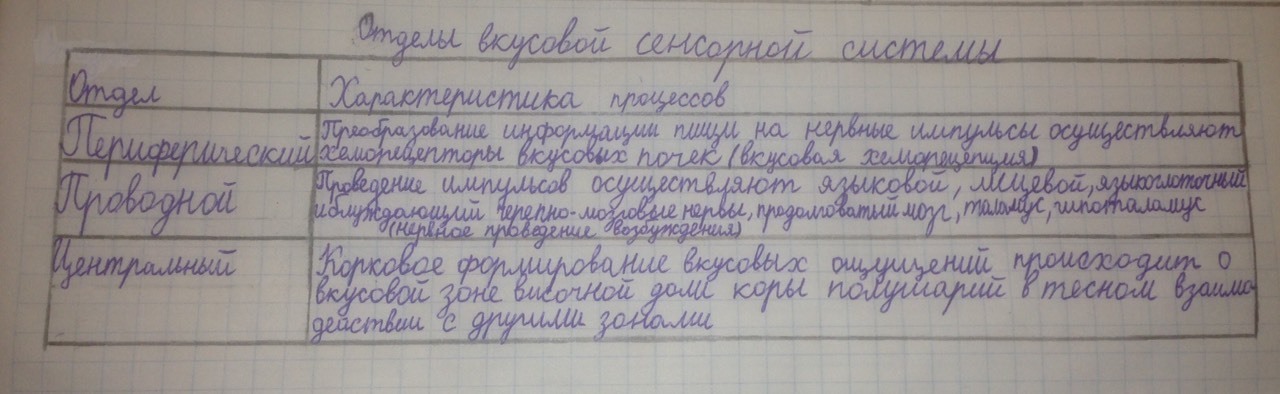 Отделы вкусовой сенсорной системы
Отдел
Характеристика процессов
Периферический
Преобразование информации пищи на нервные импульсы осуществляют
хеморецепторы вкусовых почек (вкусовая хеморецепция)
Проводной
Проведение импульсов осуществляют языковой, лицевой, языкоглоточный
и блуждающий черепно-мозговые нервы, продолговатый мозг, таламус, гипоталамус
(нервное проведение возбуждения)
Центральный
Корковое формирование вкусовых ощущений происходит о
вкусовой зоне височной доли коры полушарий в тесном взаимо
действии с другими зонами